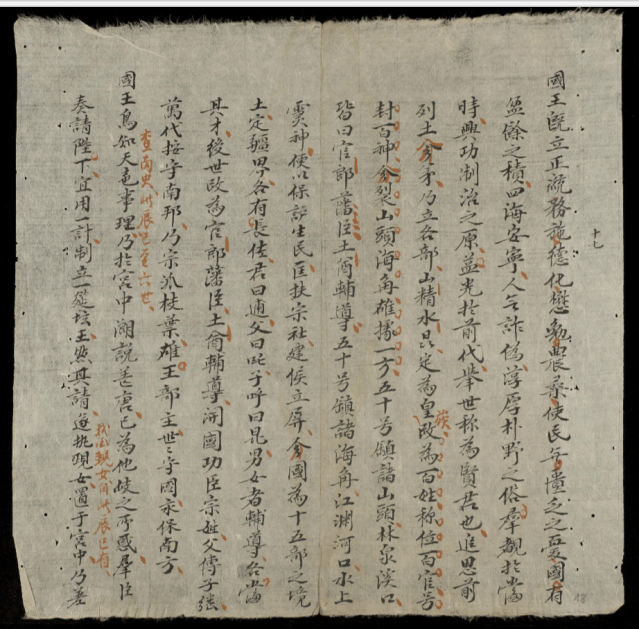 十七
國王既立正號務施德化懋勤農桑使民無匱乏之憂國有
盈餘之積四海安寧人無詐偽淳厚朴野之俗羣觀於當
時興功制治之原益光於前代舉世称為賢君也追思前
列土分茅乃立各部山精水㫒定為皇族改為百姓称位百官号
封百神分裂山頭海角雄據一方五十号鎮諸山頭林泉溪口
皆曰官郎藩臣土酋輔導五十号鎮諸海角江渊河口水上
灵神使以保護生民匡扶宗社建侯立屏分國為十五部之境
土定疆界各有長佐君曰逋父曰吒子呼曰昆男女者輔導各當
其才後世改為官郎藩臣土酋輔導開國功臣宗姓父傳子継
萬代按守南邦乃宗派枝葉雄王部主世々守國永保南方
查南史此辰已至六世
國王烏知天色事理乃於宮中潮說善言已為他岐之所惑羣臣
奏請陛下宜用一計制立一筵坛王然其請遂執現女置于宮中乃差
親女自此辰已有